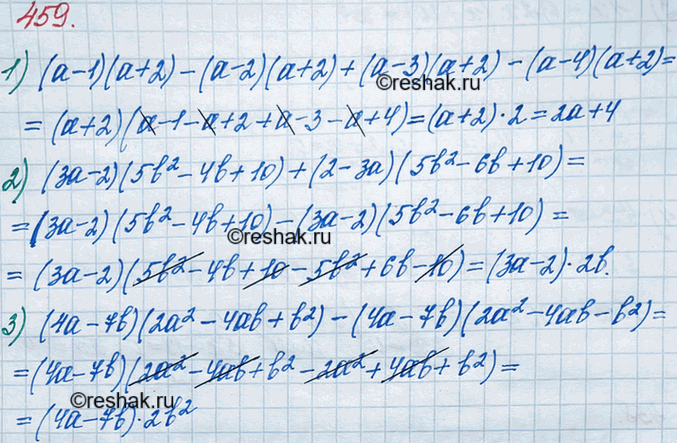 459.
1) (a-1)(a+2)-(a-2)(a+2)+(a-3)(a+2)-(a-4)(a+2)=
©reshak.ru
=(a+2)(a-1-a+2+a-3-a+4)=(a+2)·2=2a+4
2) (3a-2)(5b²-4b+10)+(2-3a)(5b²-6b+10)=
=(3a-2)(5b²-4b+10)-(3a-2)(5b²-6b+10)=
©reshak.ru
=(3a-2)(5b²-4b+10-5b²+6b-10)=(3a-2)·2b.
3) (4a-7b)(2a²-4ab+b²)-(4a-7b)(2a²-4ab-b²)=
=(4a-7b)(2a²-4ab+b²-2a²+4ab+b²)=
©reshak.ru
=(4a-7b)·2b²